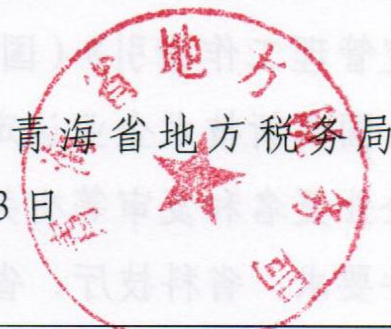 青海省地方税务局
3日
青海省地方税务局